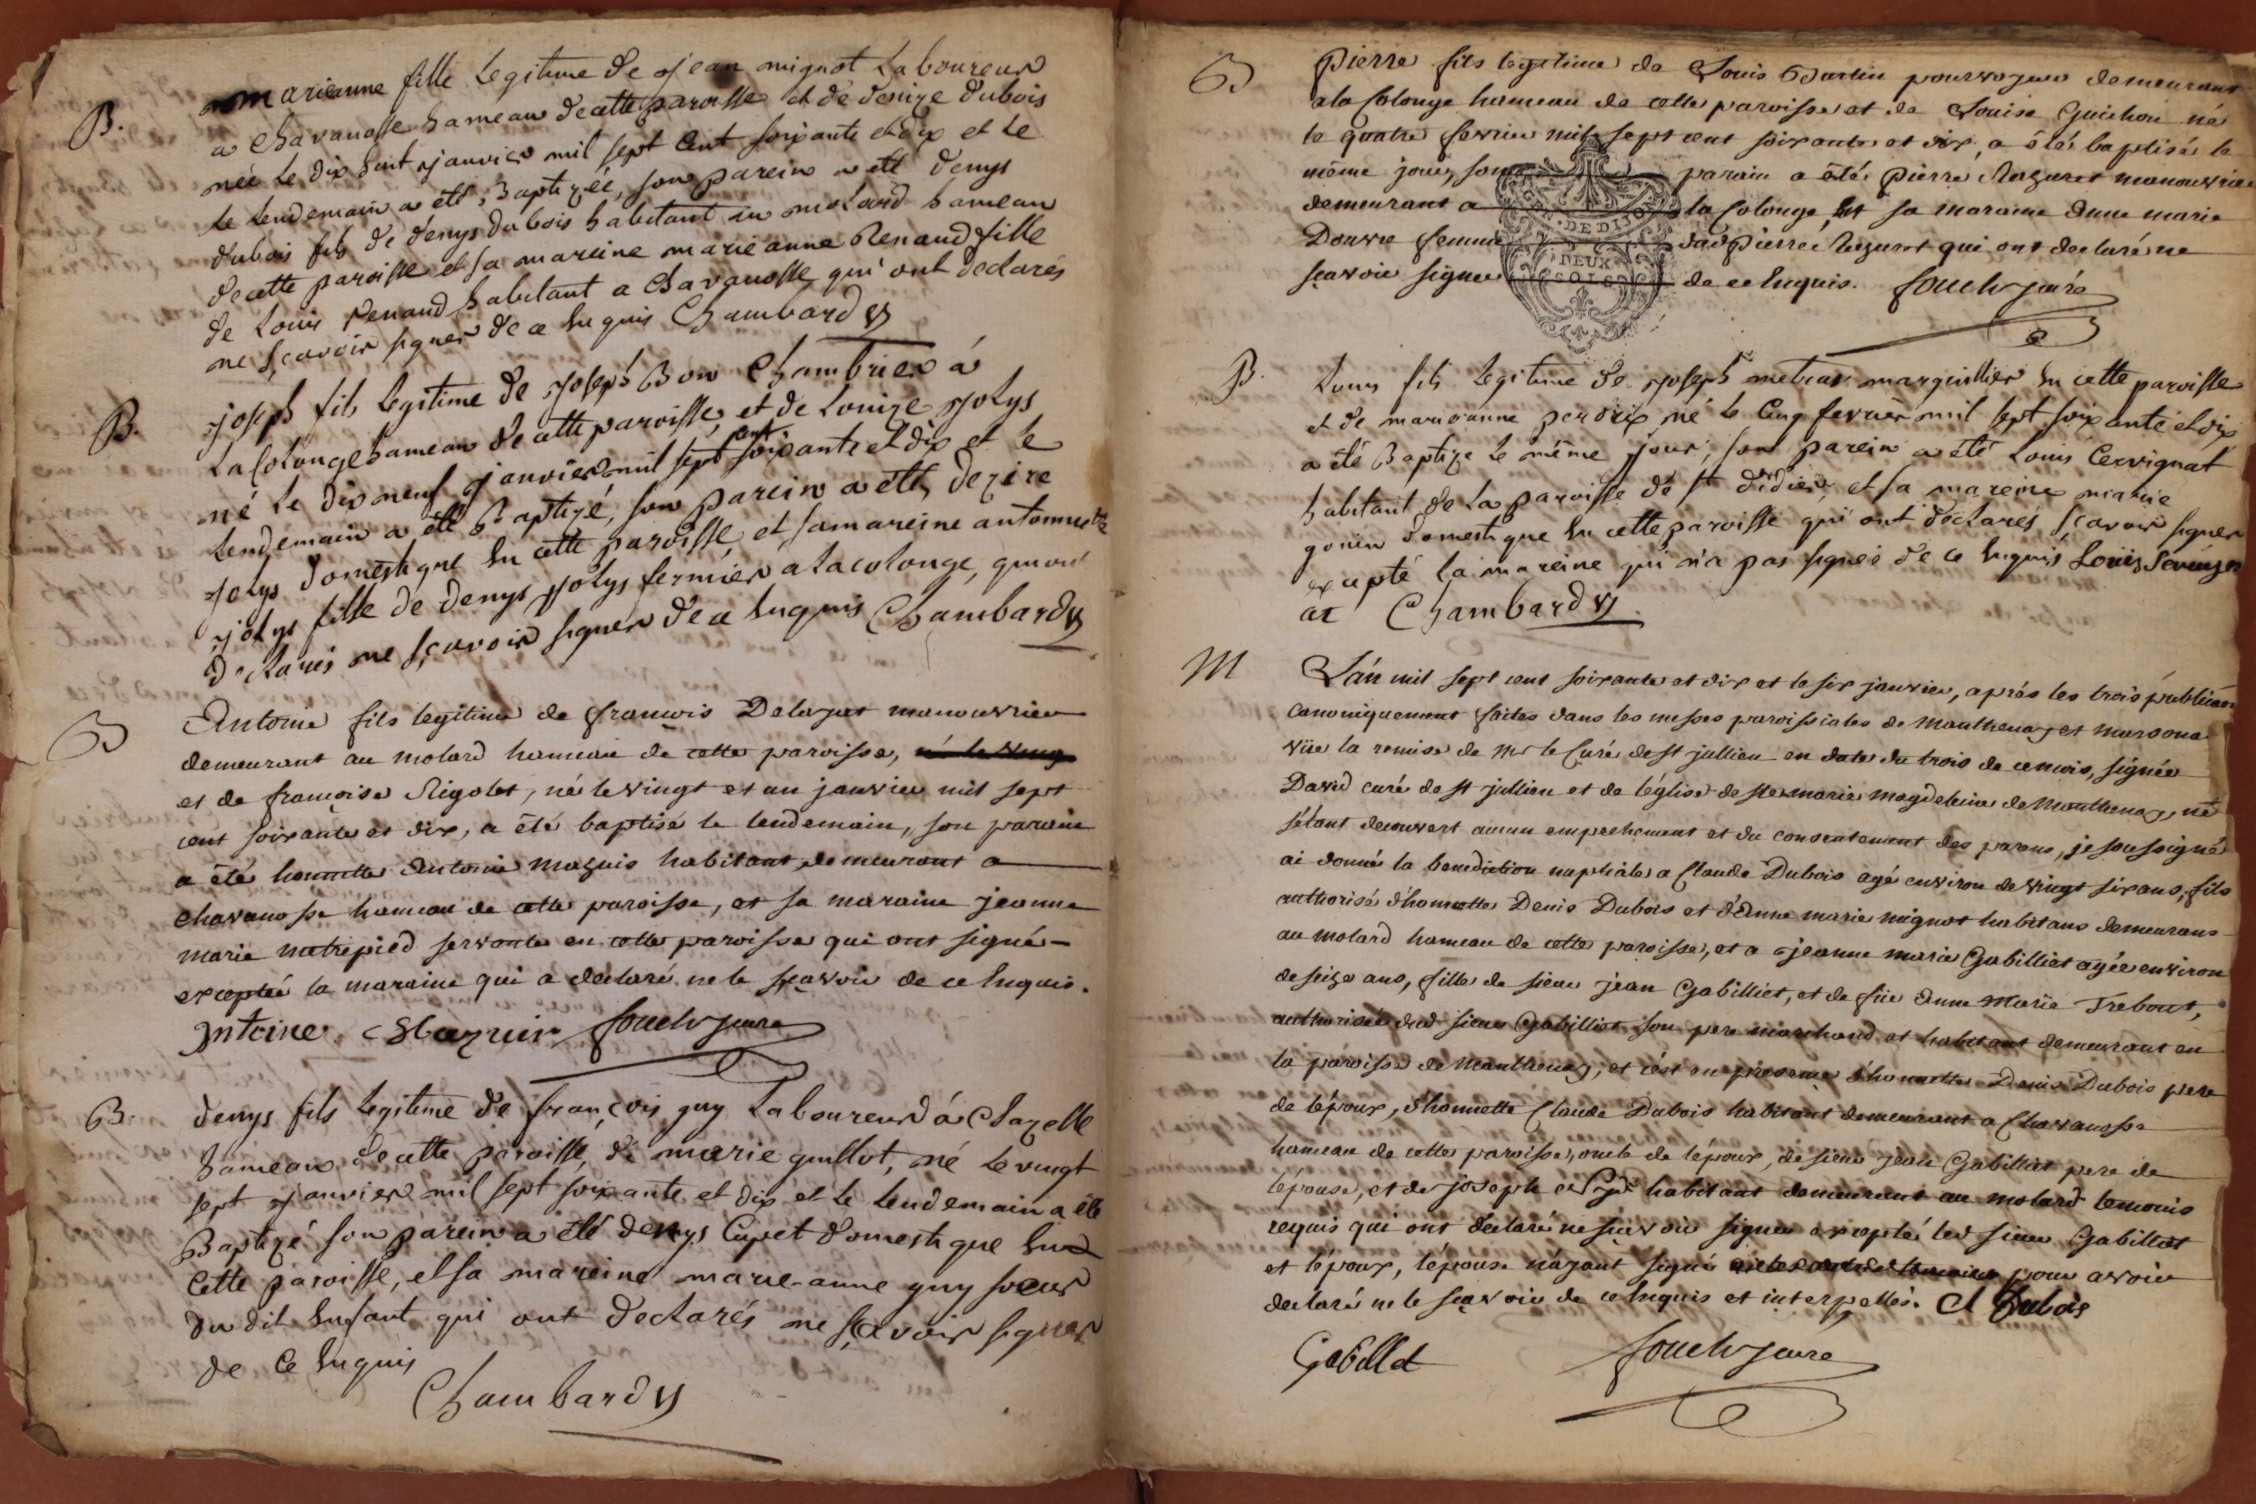 B.
marieanne fille Legitime de jean mignot Laboureur
a Chavanosse hameau de cette paroisse et de denize dubois
née Le dix huit janvier mil sept Cent soixante et dix et Le
Le lendemain a été Baptizée, son parein a été denys
dubois fils de denys dubois habitant au molard hameau
de cette paroisse et sa mareine marie anne Renaud fille
de Louis Renaud habitant a Chavanosse qui ont declarés
ne sçavoir signer de ce Enquis Chambard
B.
joseph fils Legitime de joseph Bon Chambrier à
La Colonge hameau de cette paroisse, et de Louize jolys
né Le dix neuf janvier mil sept cent soixante et dix et Le
lendemain a été Baptizé, son parein a été dezire
jolys domestique En cette paroisse, et sa mareine antoinette
jolys fille de denys jolys fermier à la colonge, qui ont
declarés ne sçavoir signer de ce Enquis Chambard
B
Antoine fils legitime de françois Delayat manouvrier
demeurant au molard hameau de cette paroisse, né le vingt
et de françoise Rigolet, né le vingt et un janvier mil sept
cent soixante et dix, a été baptisé le lendemain, son parain
a été honnette Antoine mazuir habitant demeurant a
chavanosse hameau de cette paroisse, et sa maraine jeanne
marie matrepied servante en cette paroisse qui ont signé
excepté la maraine qui a declaré ne le sçavoir de ce Enquis.
Antoine Mazuir
B.
denys fils Legitime de françois guy Laboureur à Chazelle
hameau de cette paroisse, de marie guillot, né Le vingt
sept janvier mil sept soixante et dix et le lendemain a été
Baptizé son parein a été denys Cupet domestique En
Cette paroisse, et sa mareine marie-anne guy soeur
du dit Enfant qui ont declarés ne sçavoir signer
de Ce Enquis
Chambard
B
Pierre fils legitime de Louis Bartin pourvoyeur demeurant
a la Colonge hameau de cette paroisse et de Louise Guichon né
le quatre fevrier mil sept cent soixante et dix, a été baptisé le
même jour, son parain a été Pierre Mazuret manouvrier
demeurant a la Colonge, Et sa maraine Anne marie
Douvre femme dud Pierre Mazuret qui ont declaré ne
sçavoir signer de ce Enquis.
DE DI
DEUX
SOLS
B.
Louis fils Legitime de joseph metras marguillier En cette paroisse
et de marieanne perdrix né Le Cinq fevrier mil sept soixante et dix
a été Baptize Le même jour, son parein a été Louis Cervignat
habitant de La paroisse de St didier, et sa mareine marie
gonin domestique En cette paroisse qui ont declarés sçavoir signer
excepté la mareine qui n'a pas signée de ce Enquis Louis Servign
at Chambard
M
L'an mil sept cent soixante et dix et le six janvier, aprés les trois publications
canoniquement faites dans les messes paroissiales de Manthenay et Marsonna
vüe la remise de Mr le Curé de st jullien en date du trois de ce mois, signée
David curé de st jullien et de l'église de ste marie magdeleine de Monthenay, ne
s'étant decouvert aucun empechement et du consentement des parens, je soussigné
ai donné la benediction nuptiale a Claude Dubois agé environ de vingt six ans, fils
authorisé d'honnette Denis Dubois et d'Anne marie mignot habitans demeurans
au molard hameau de cette paroisse, et a jeanne marie Gabilliet agée environ
de seize ans, fille de sieur jean Gabilliet, et de füe Anne Marie Trebout,
authorisée dud sieur Gabilliet son pere marchand et habitant demeurant en
la paroisse de Manthenay, et c'est en presence d'honnette Denis Dubois pere
de l'époux, d'honnette Claude Dubois habitant demeurant a Chavanosse
hameau de cette paroisse, oncle de l'époux, de sieur jean Gabilliet pere de
l'épouse, et de joseph habitant demeurant au molard temoins
requis qui ont declaré ne sçavoir signer excepté led sieur Gabilliet
et l'époux, l'épouse n'ayant signé pour avoir
declaré ne le sçavoir de ce Enquis et interpellés. Cl Dubois
Gabillet